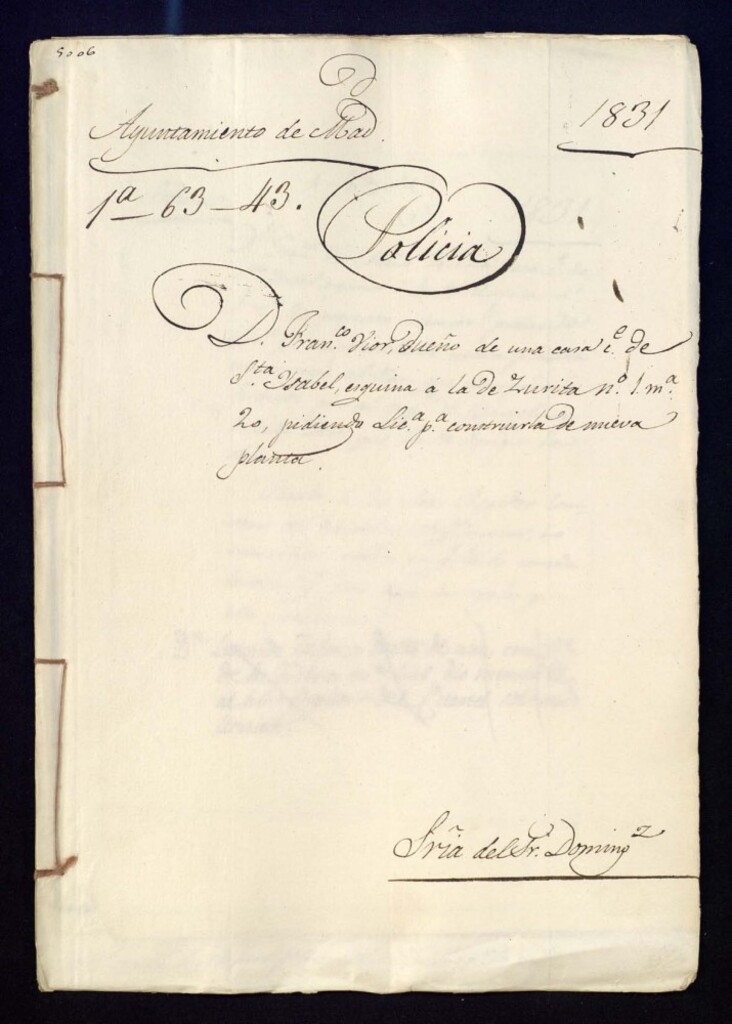 5006
Ayuntamiento de Mad.
1831
1ª - 63 - 43.
Policia
D. Fran.co Vior, Dueño de una casa c.e de
S.ta Ysabel, esquina á la de Zurita n.o 1. m.a
20, pidiendo Lic.a p.a construirla de nueva
planta.
Sría del Sr. Doming.z